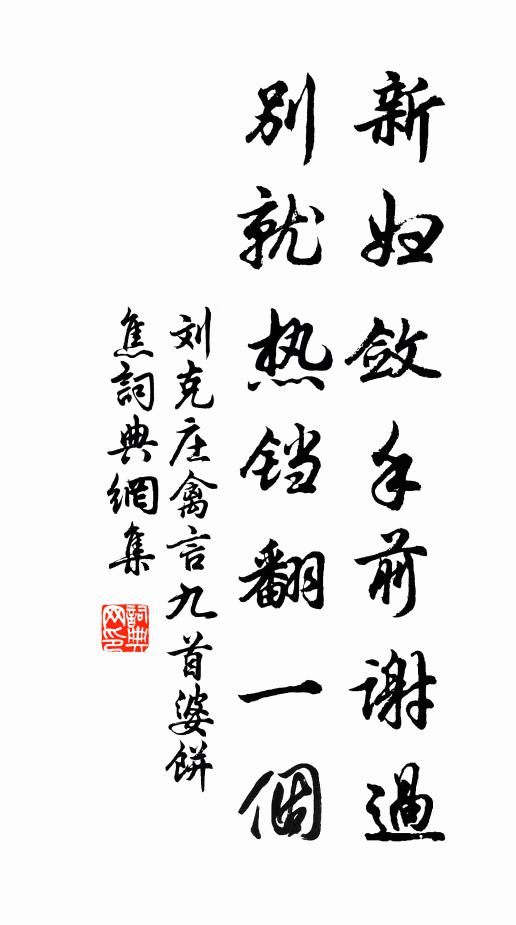 新妇敛手前谢過
別就热铛翻一個
刘克庄禽言九首婆餅
焦詞典網集
詞典网印